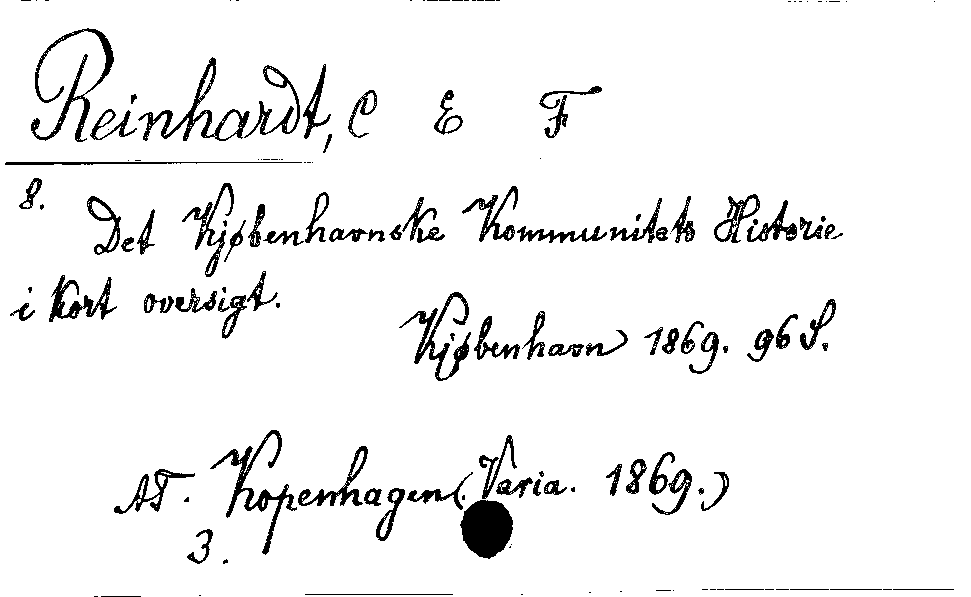 Reinhardt, C E F
8.
Det Kjøbenhavnske Kommunitets Historie
i Kort oversigt.
Kjøbenhavn 1869. 96 S.
AT. Kopenhagen (Varia. 1869.)
3.